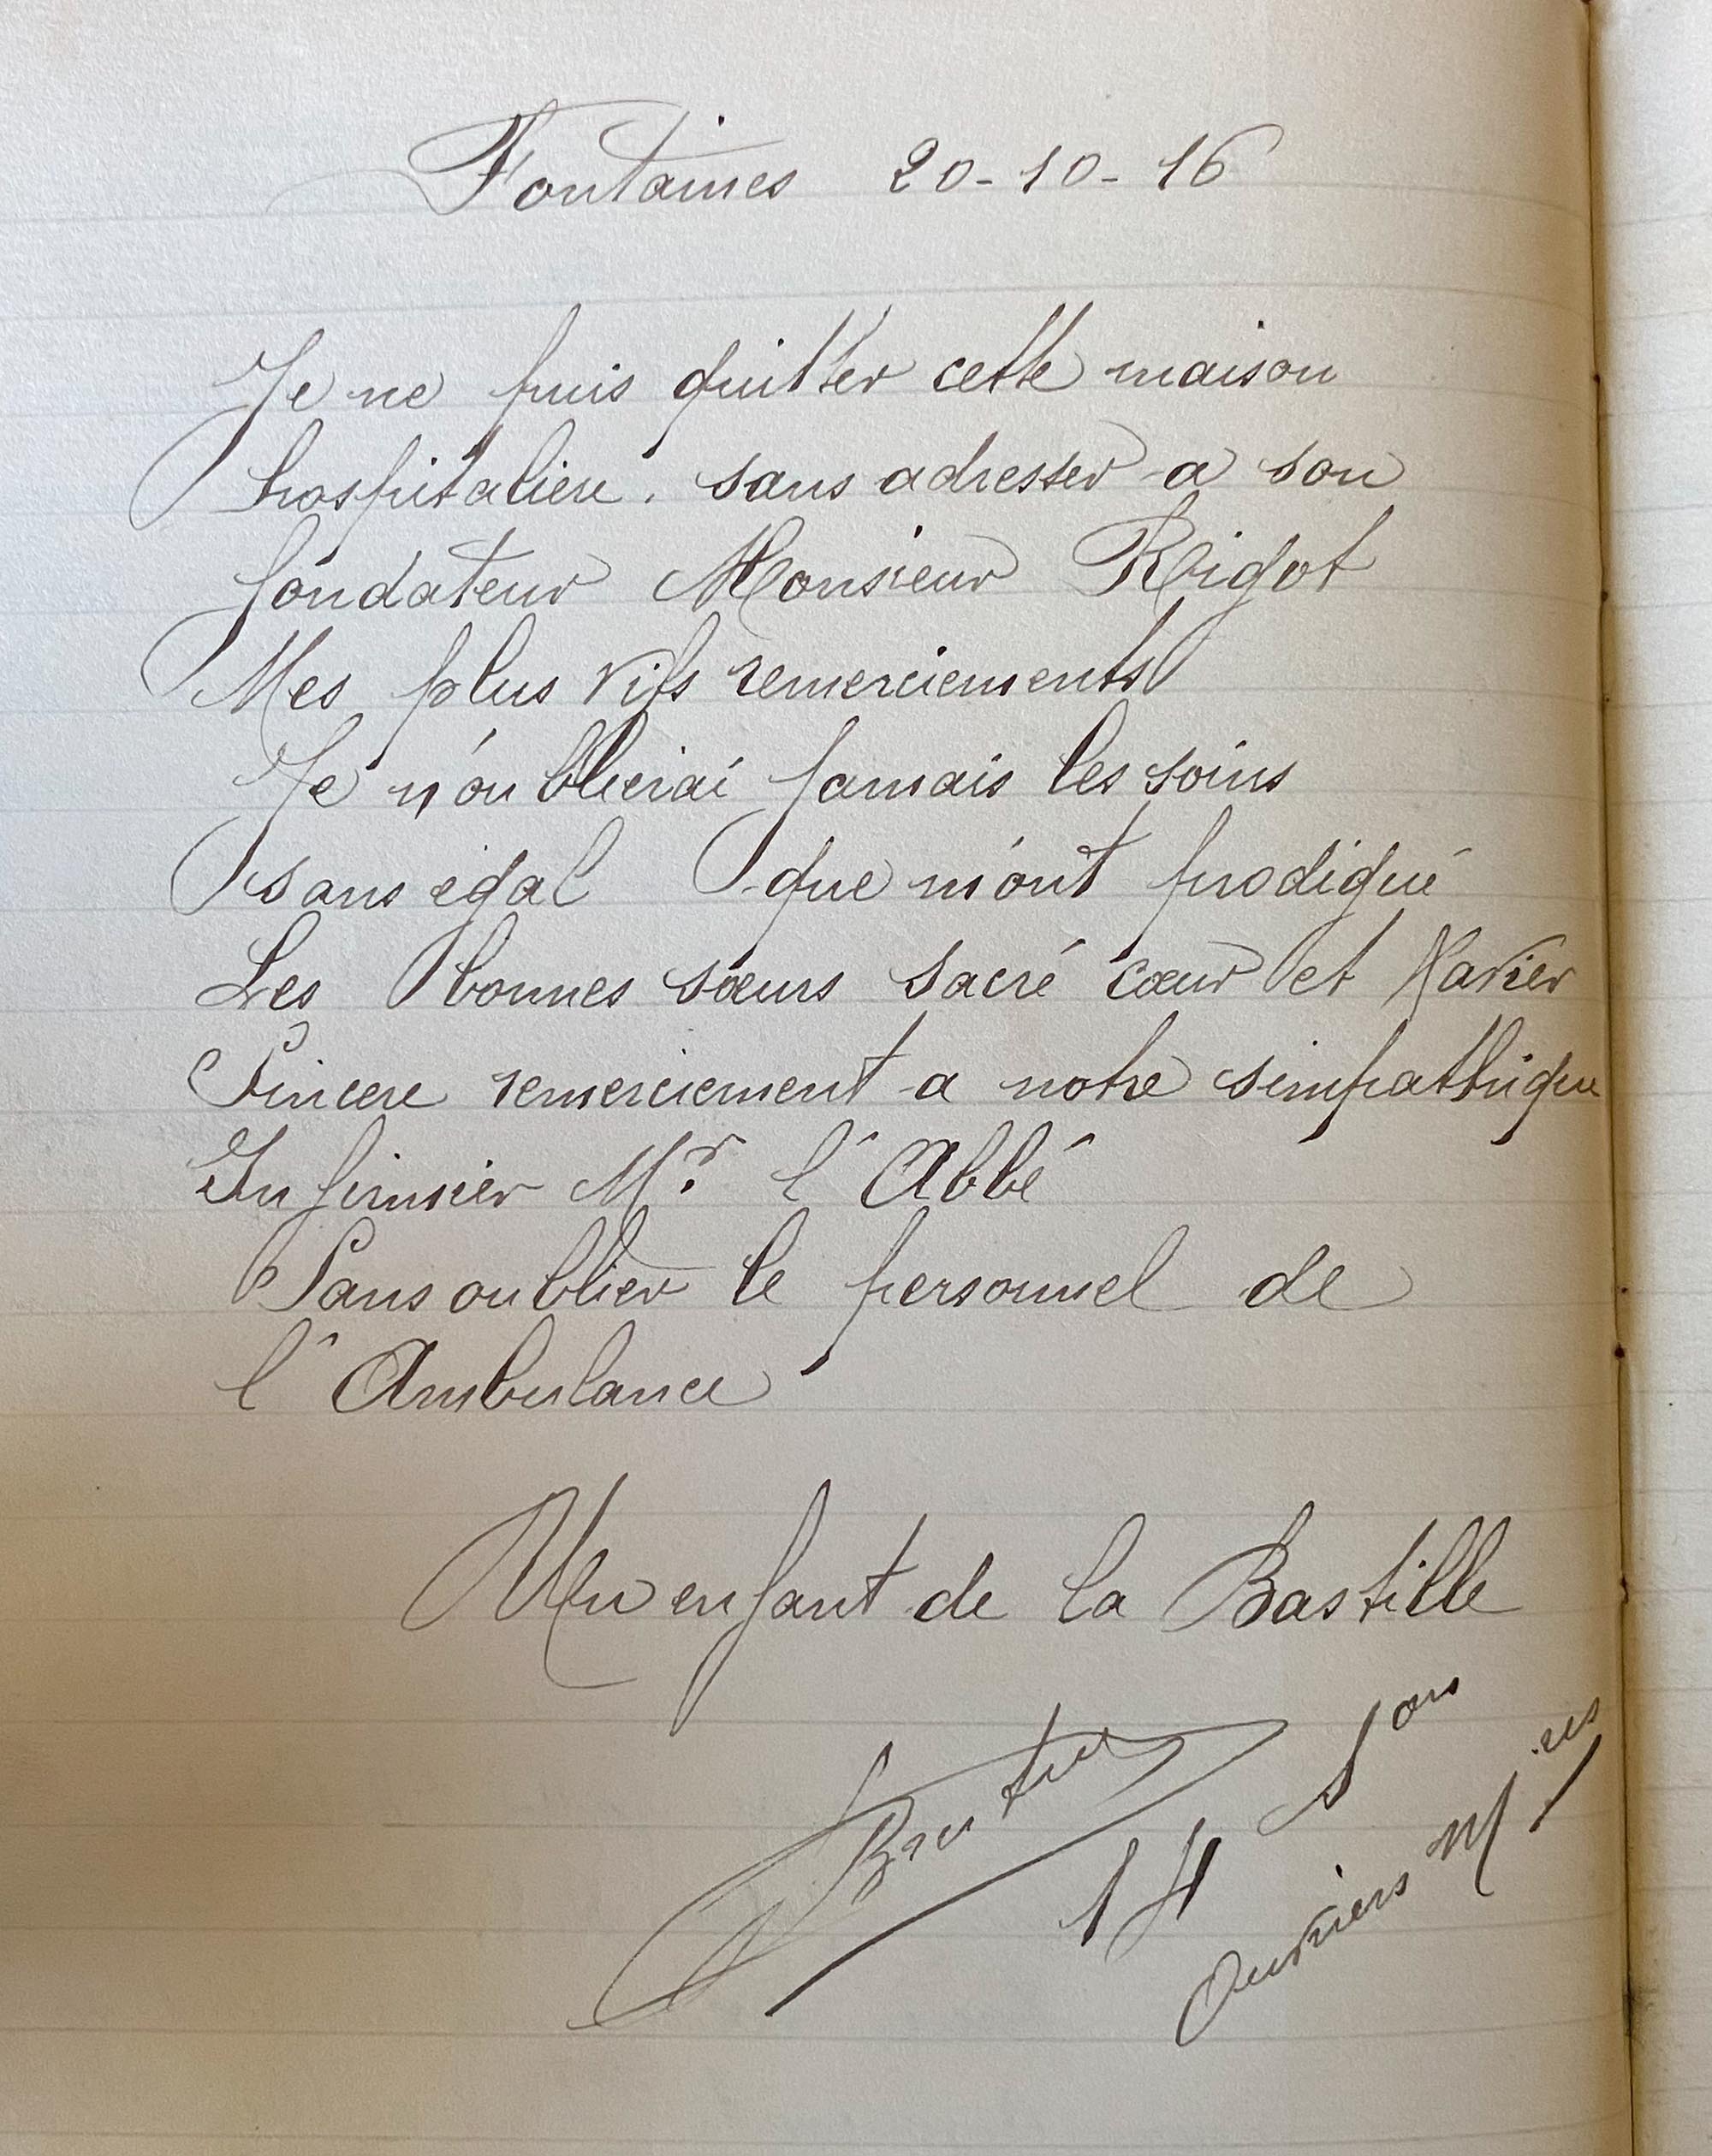 Fontaines 20-10-16
Je ne puis quitter cette maison
hospitalière. sans adresser a son
fondateur Monsieur Rigot
Mes plus vifs remerciements
Je n'oublierai jamais les soins
sans égal que m'ont prodigué
Les bonnes sœurs sacré cœur et Xavier
Sincere remerciement a notre simpathique
Infirmier Mr l'Abbé
Sans oublier le personnel de
l'Ambulance
Un enfant de la Bastille
14 Son
Ouvriers Mires